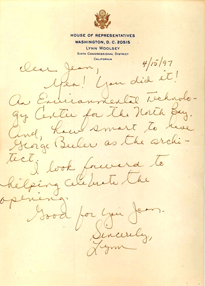 HOUSE OF REPRESENTATIVES
WASHINGTON, D. C. 20515
LYNN WOOLSEY
SIXTH CONGRESSIONAL DISTRICT
CALIFORNIA
4/15/97
Dear Jean,
Yea! You did it!
An Environmental Technolo-
gy Center for the North Bay.
And, how smart to use
George Buhler as the archi-
tect.
I look forward to
helping celebrate the
opening.
Good for you Jean.
Sincerely,
Lynn